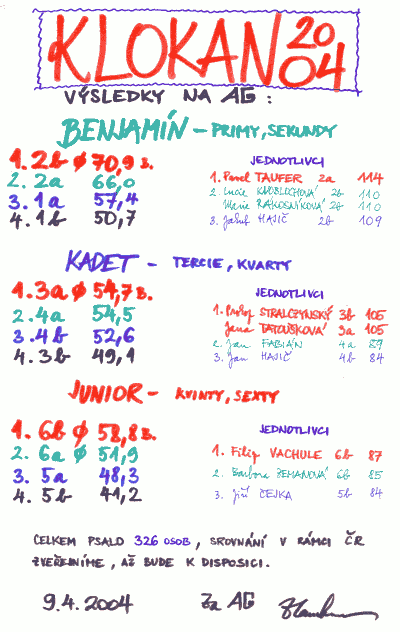 KLOKAN 2004
VÝSLEDKY NA AG:
BENJAMÍN – PRIMY, SEKUNDY
1. 2b ϕ 70,9 b.
2. 2a 66,0
3. 1a 57,4
4. 1b 50,7
JEDNOTLIVCI
1. Pavel TAUFER 2a 114
2. Lucie KNOBLOCHOVÁ 2b 110
Marie RAKOSNÍKOVÁ 2b 110
3. Jakub HASIČ 2b 109
KADET – TERCIE, KVARTY
1. 3a ϕ 54,7 b.
2. 4a 54,5
3. 4b 52,6
4. 3b 49,1
JEDNOTLIVCI
1. Prokop STRALCZYNSKÝ 3b 105
Jana TATOUŠKOVÁ 3a 105
2. Jan FABIÁN 4a 89
3. Jan HASIČ 4b 84
JUNIOR – KVINTY, SEXTY
1. 6b ϕ 58,8 b.
2. 6a ϕ 51,9
3. 5a 48,3
4. 5b 41,2
JEDNOTLIVCI
1. Filip VACHULE 6b 87
2. Barbora ZEMANOVÁ 6b 85
3. Jiří ČEJKA 5b 84
CELKEM PSALO 326 OSOB, SROVNÁNÍ V RÁMCI ČR
ZVEŘEJNÍME, AŽ BUDE K DISPOZICI.
9.4.2004 Za AG